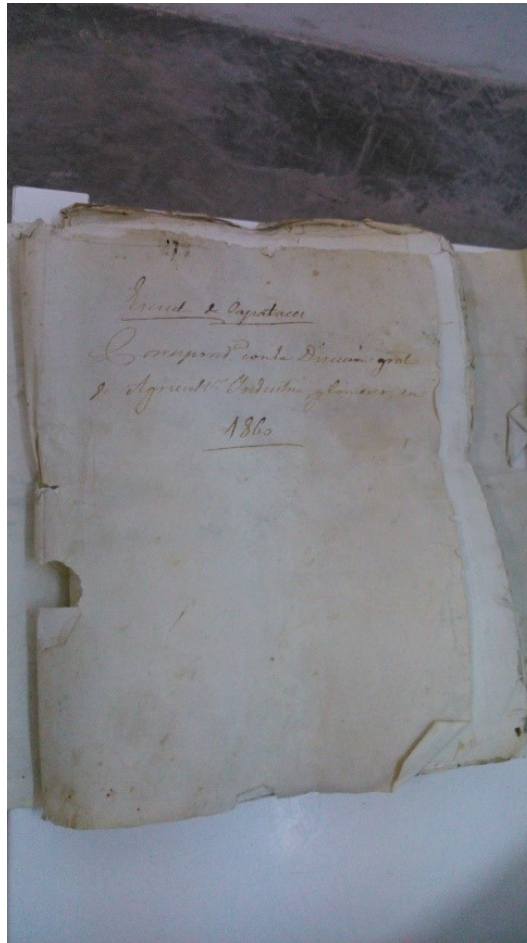 Escuel de Capataces
Correspond.ª con la Dirección gral
de Agricult.ª Industria y Comercio en
1860